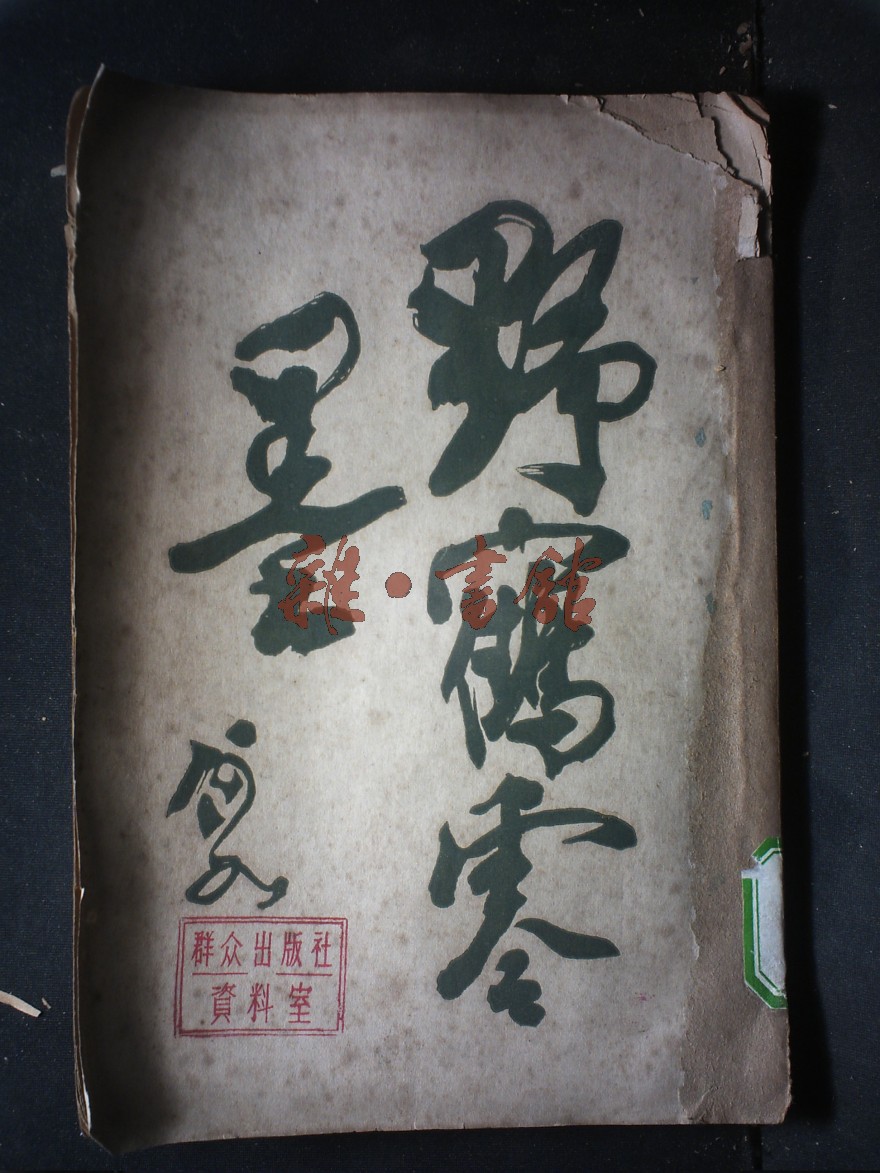 野鶴零
墨
雜●書館
群众出版社
資料室